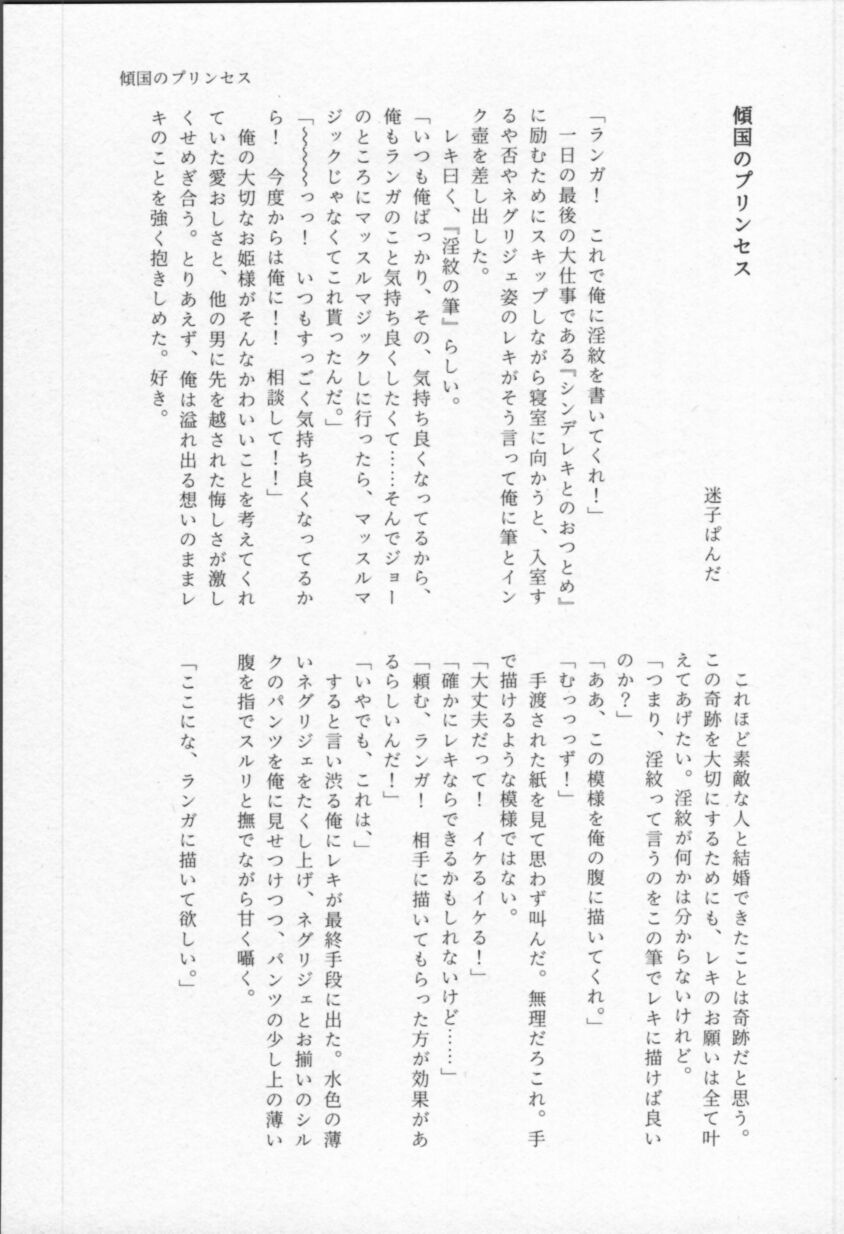 傾国のプリンセス
傾国のプリンセス
迷子ぱんだ
「ランガ！　これで俺に淫紋を書いてくれ！」
　一日の最後の大仕事である『シンデレキとのおつとめ』
に励むためにスキップしながら寝室に向かうと、入室す
るや否やネグリジェ姿のレキがそう言って俺に筆とイン
ク壺を差し出した。
　レキ曰く、『淫紋の筆』らしい。
「いつも俺ばっかり、その、気持ち良くなってるから、
俺もランガのこと気持ち良くしたくて……そんでジョー
のところにマッスルマジックしに行ったら、マッスルマ
ジックじゃなくてこれ貰ったんだ。」
「〜〜〜〜っっ！　いつもすっごく気持ち良くなってるか
ら！　今度からは俺に！！　相談して！！」
　俺の大切なお姫様がそんなかわいいことを考えてくれ
ていた愛おしさと、他の男に先を越された悔しさが激し
くせめぎ合う。とりあえず、俺は溢れ出る想いのままレ
キのことを強く抱きしめた。好き。
　これほど素敵な人と結婚できたことは奇跡だと思う。
この奇跡を大切にするためにも、レキのお願いは全て叶
えてあげたい。淫紋が何かは分からないけれど。
「つまり、淫紋って言うのをこの筆でレキに描けば良い
のか？」
「ああ、この模様を俺の腹に描いてくれ。」
「むっっっず！」
　手渡された紙を見て思わず叫んだ。無理だろこれ。手
で描けるような模様ではない。
「大丈夫だって！　イケるイケる！」
「確かにレキならできるかもしれないけど……」
「頼む、ランガ！　相手に描いてもらった方が効果があ
るらしいんだ！」
「いやでも、これは、」
　すると言い渋る俺にレキが最終手段に出た。水色の薄
いネグリジェをたくし上げ、ネグリジェとお揃いのシル
クのパンツを俺に見せつけつつ、パンツの少し上の薄い
腹を指でスルリと撫でながら甘く囁く。
「ここにな、ランガに描いて欲しい。」